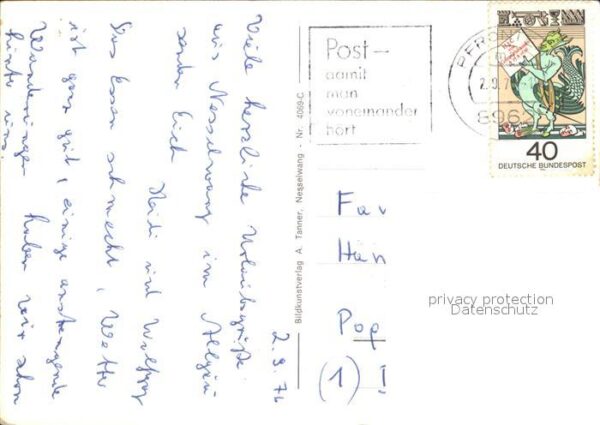 2.9.76
Viele herzliche Urlaubsgrüße
aus Nesselwang im Allgäu
senden Euch
Heidi und Wolfgang
Das Essen schmeckt, Wetter
ist ganz gut, einige anstrengende
Wanderungen haben wir schon
hinter uns.
Bildkunstverlag A. Tanner, Nesselwang - Nr. 4069-C
Post-
damit
man
voneinander
hört
PFRON
2.9.7
896
40
DEUTSCHE BUNDESPOST
Fav
Han
Pog
(1) I
privacy protection
Datenschutz